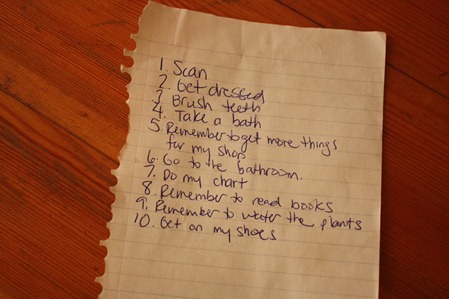 1. Scan
2. Get dressed
3. Brush teeth
4. Take a bath
5. Remember to get more things
for my shop
6. Go to the bathroom.
7. Do my chart
8. Remember to read books
9. Remember to water the plants
10. Get on my shoes